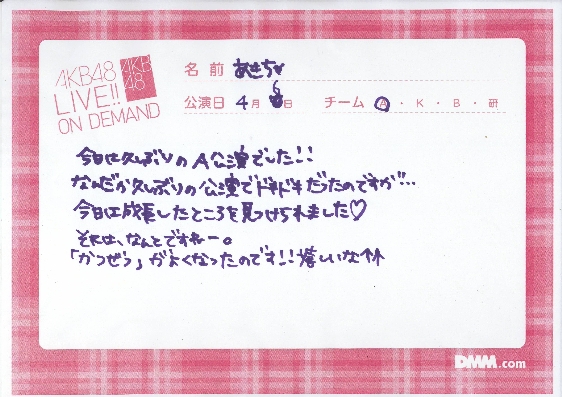 AKB48
LIVE!!
ON DEMAND
AKB
48
名前 あきちゃ
公演日 4月 6日 チーム A・K・B・研
今日は久しぶりのA公演でした!!
なんだか久しぶりの公演でドキドキだったのですが…
今日は成長したところを見つけられました♡
それは、なんとですねー。
「かつぜつ」がよくなったのです!!嬉しいな
DMM.com